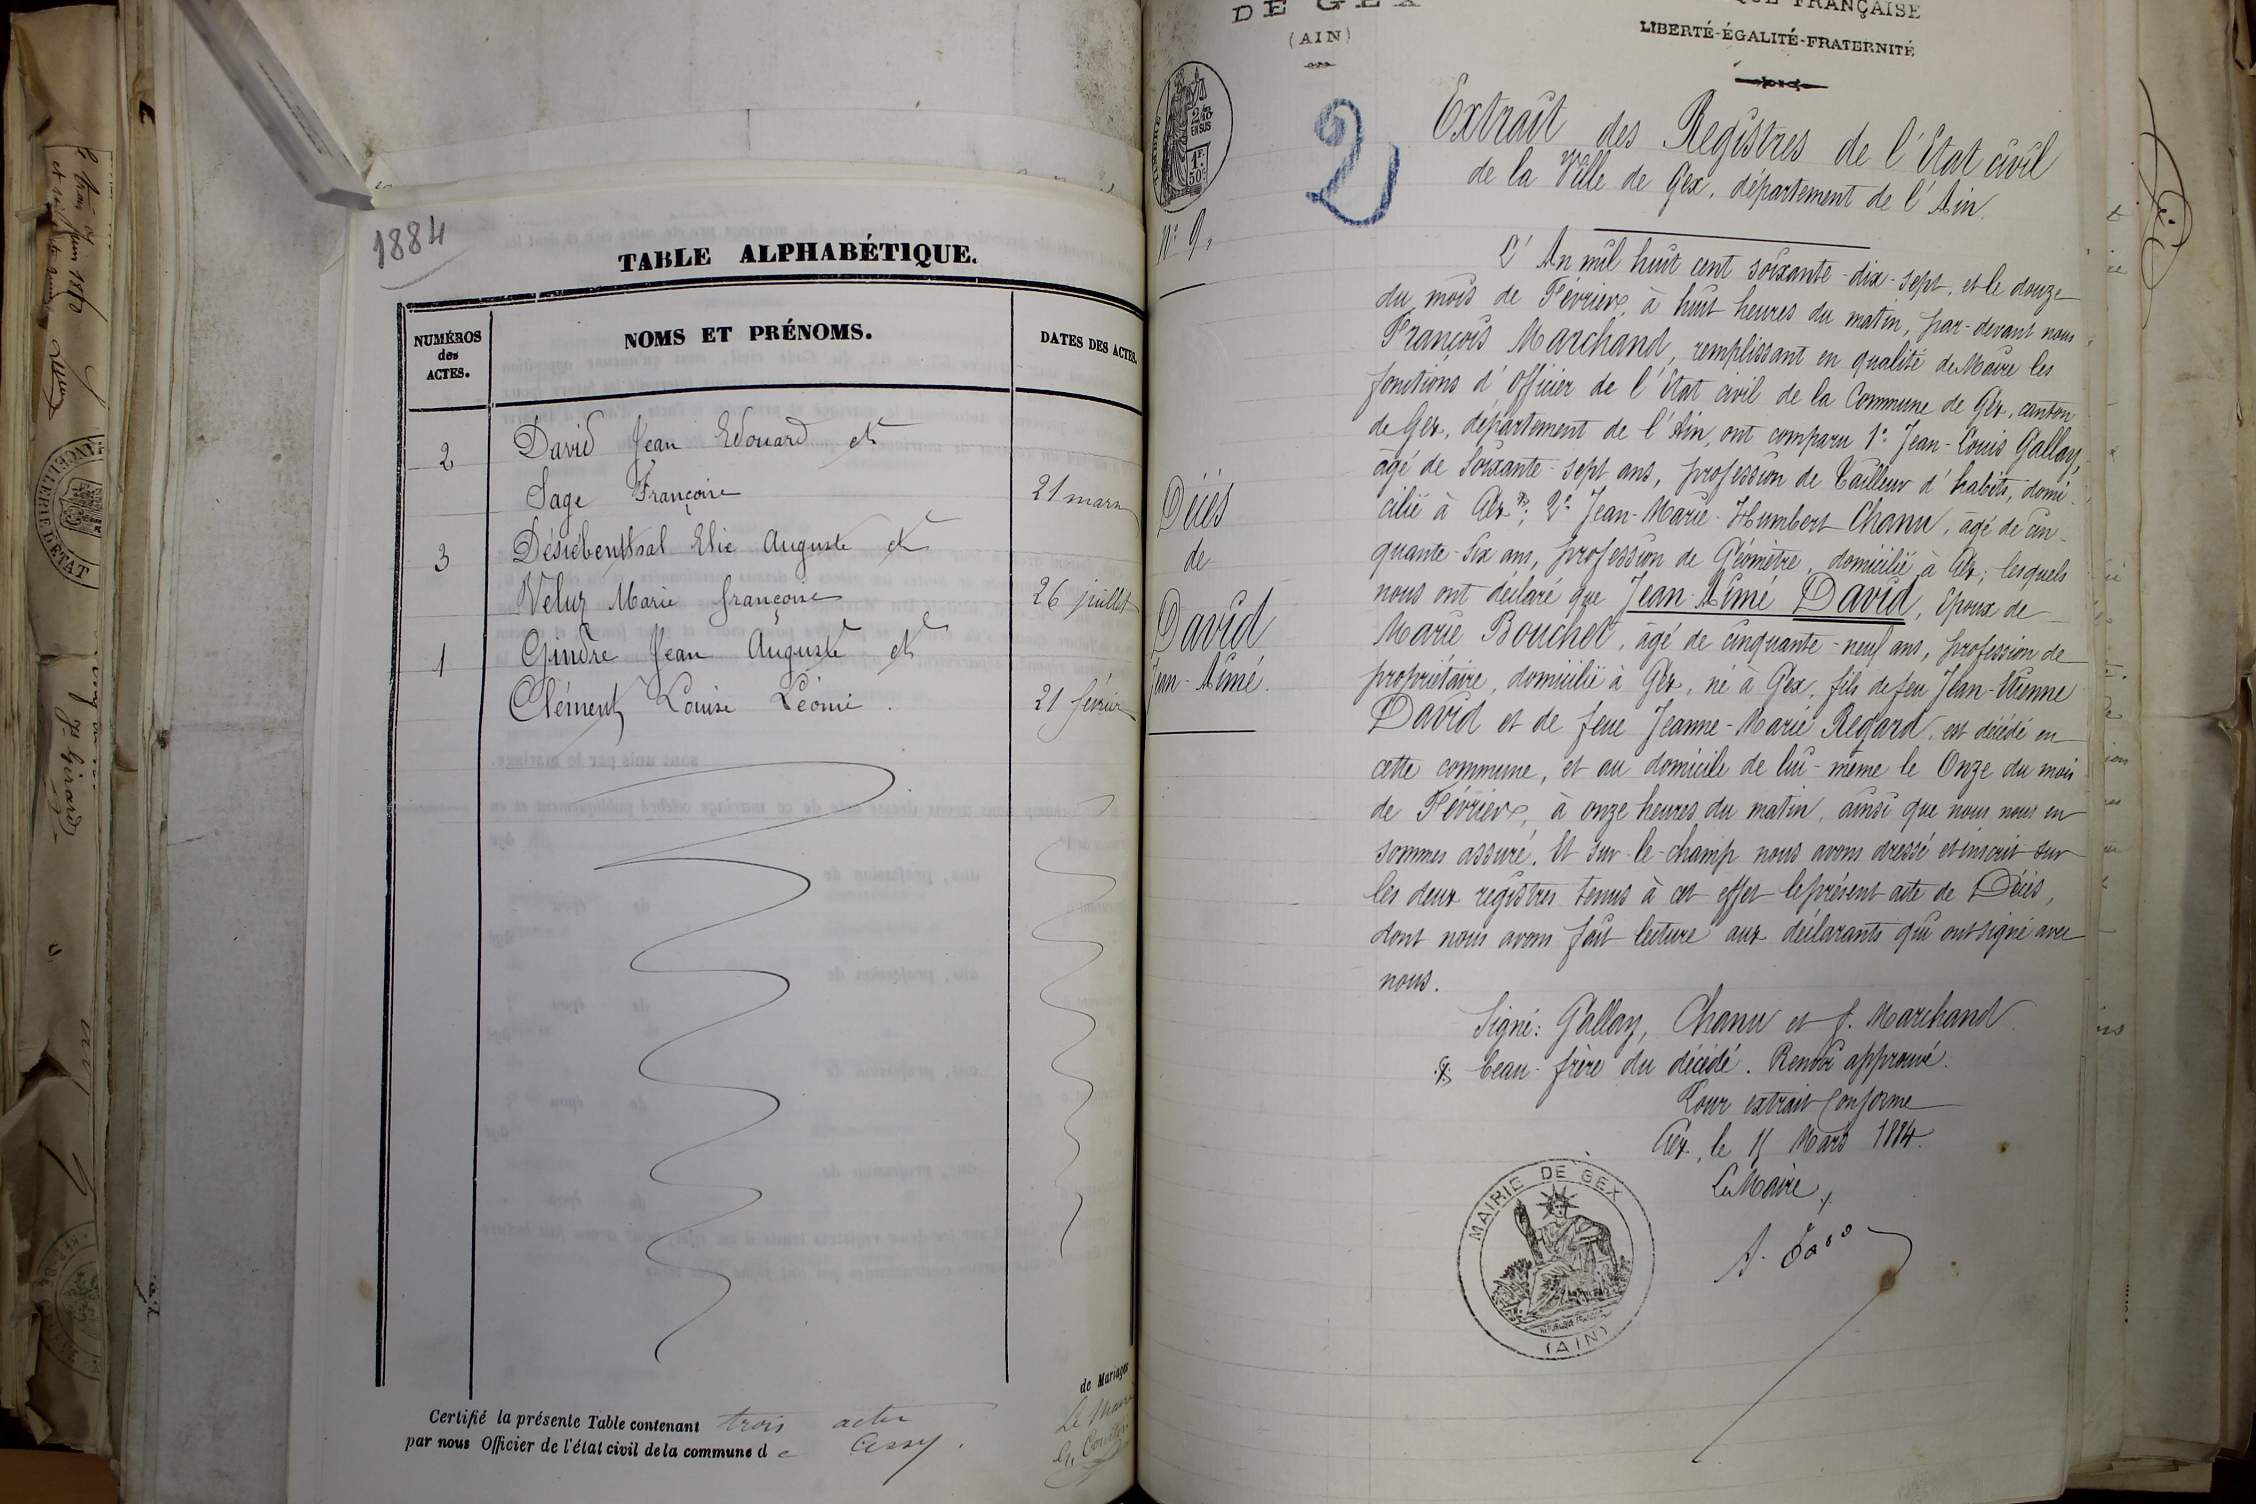 1884
TABLE ALPHABÉTIQUE.
NUMÉROS
des
ACTES.
NOMS ET PRÉNOMS.
DATES DES ACTES.
2
David Jean Edouard et
Sage Françoise
21 mars
3
Désiébenthal Elie Auguste et
Veluz Marie françoise
26 juillet
1
Gindre Jean Auguste et
Clément Louise Léonie
21 février
Certifié la présente Table contenant trois actes
de Mariages
par nous Officier de l'état civil de la commune de Cessy.
Le Maire
DE GEX
(AIN)
FRANÇAISE
LIBERTÉ-ÉGALITÉ-FRATERNITÉ
TIMBRE
2/10
EN SUS
1F.
50c.
2
N° 9.
Extrait des Registres de l'Etat civil
de la Ville de Gex, département de l'Ain.
Décès
de
David
Jean-Aimé.
L'An mil huit cent soixante-dix-sept, et le douze
du mois de Février, à huit heures du matin, par-devant nous
François Marchand, remplissant en qualité de Maire les
fonctions d'Officier de l'Etat civil de la Commune de Gex, canton
de Gex, département de l'Ain, ont comparu 1° Jean-Louis Gallay,
âgé de soixante-sept ans, profession de Tailleur d'habits, domi-
cilié à Gex; 2° Jean-Marie-Humbert Chanu, âgé de cin-
quante-six ans, profession de Géomètre, domicilié à Gex; lesquels
nous ont déclaré que Jean-Aimé David, époux de
Marie Bouchet, âgé de cinquante-neuf ans, profession de
propriétaire, domicilié à Gex, né à Gex, fils de feu Jean-Etienne
David et de feue Jeanne-Marie Regard, est décédé en
cette commune, et au domicile de lui-même le Onze du mois
de Février, à onze heures du matin, ainsi que nous nous en
sommes assuré. Et sur-le-champ nous avons dressé et inscrit sur
les deux registres tenus à cet effet le présent acte de Décès,
dont nous avons fait lecture aux déclarants qui ont signé avec
nous.
Signé: Gallay, Chanu et F. Marchand
beau-frère du décédé. Renvoi approuvé.
Pour extrait conforme
Gex, le 11 Mars 1884.
Le Maire,
MAIRIE DE GEX
(AIN)